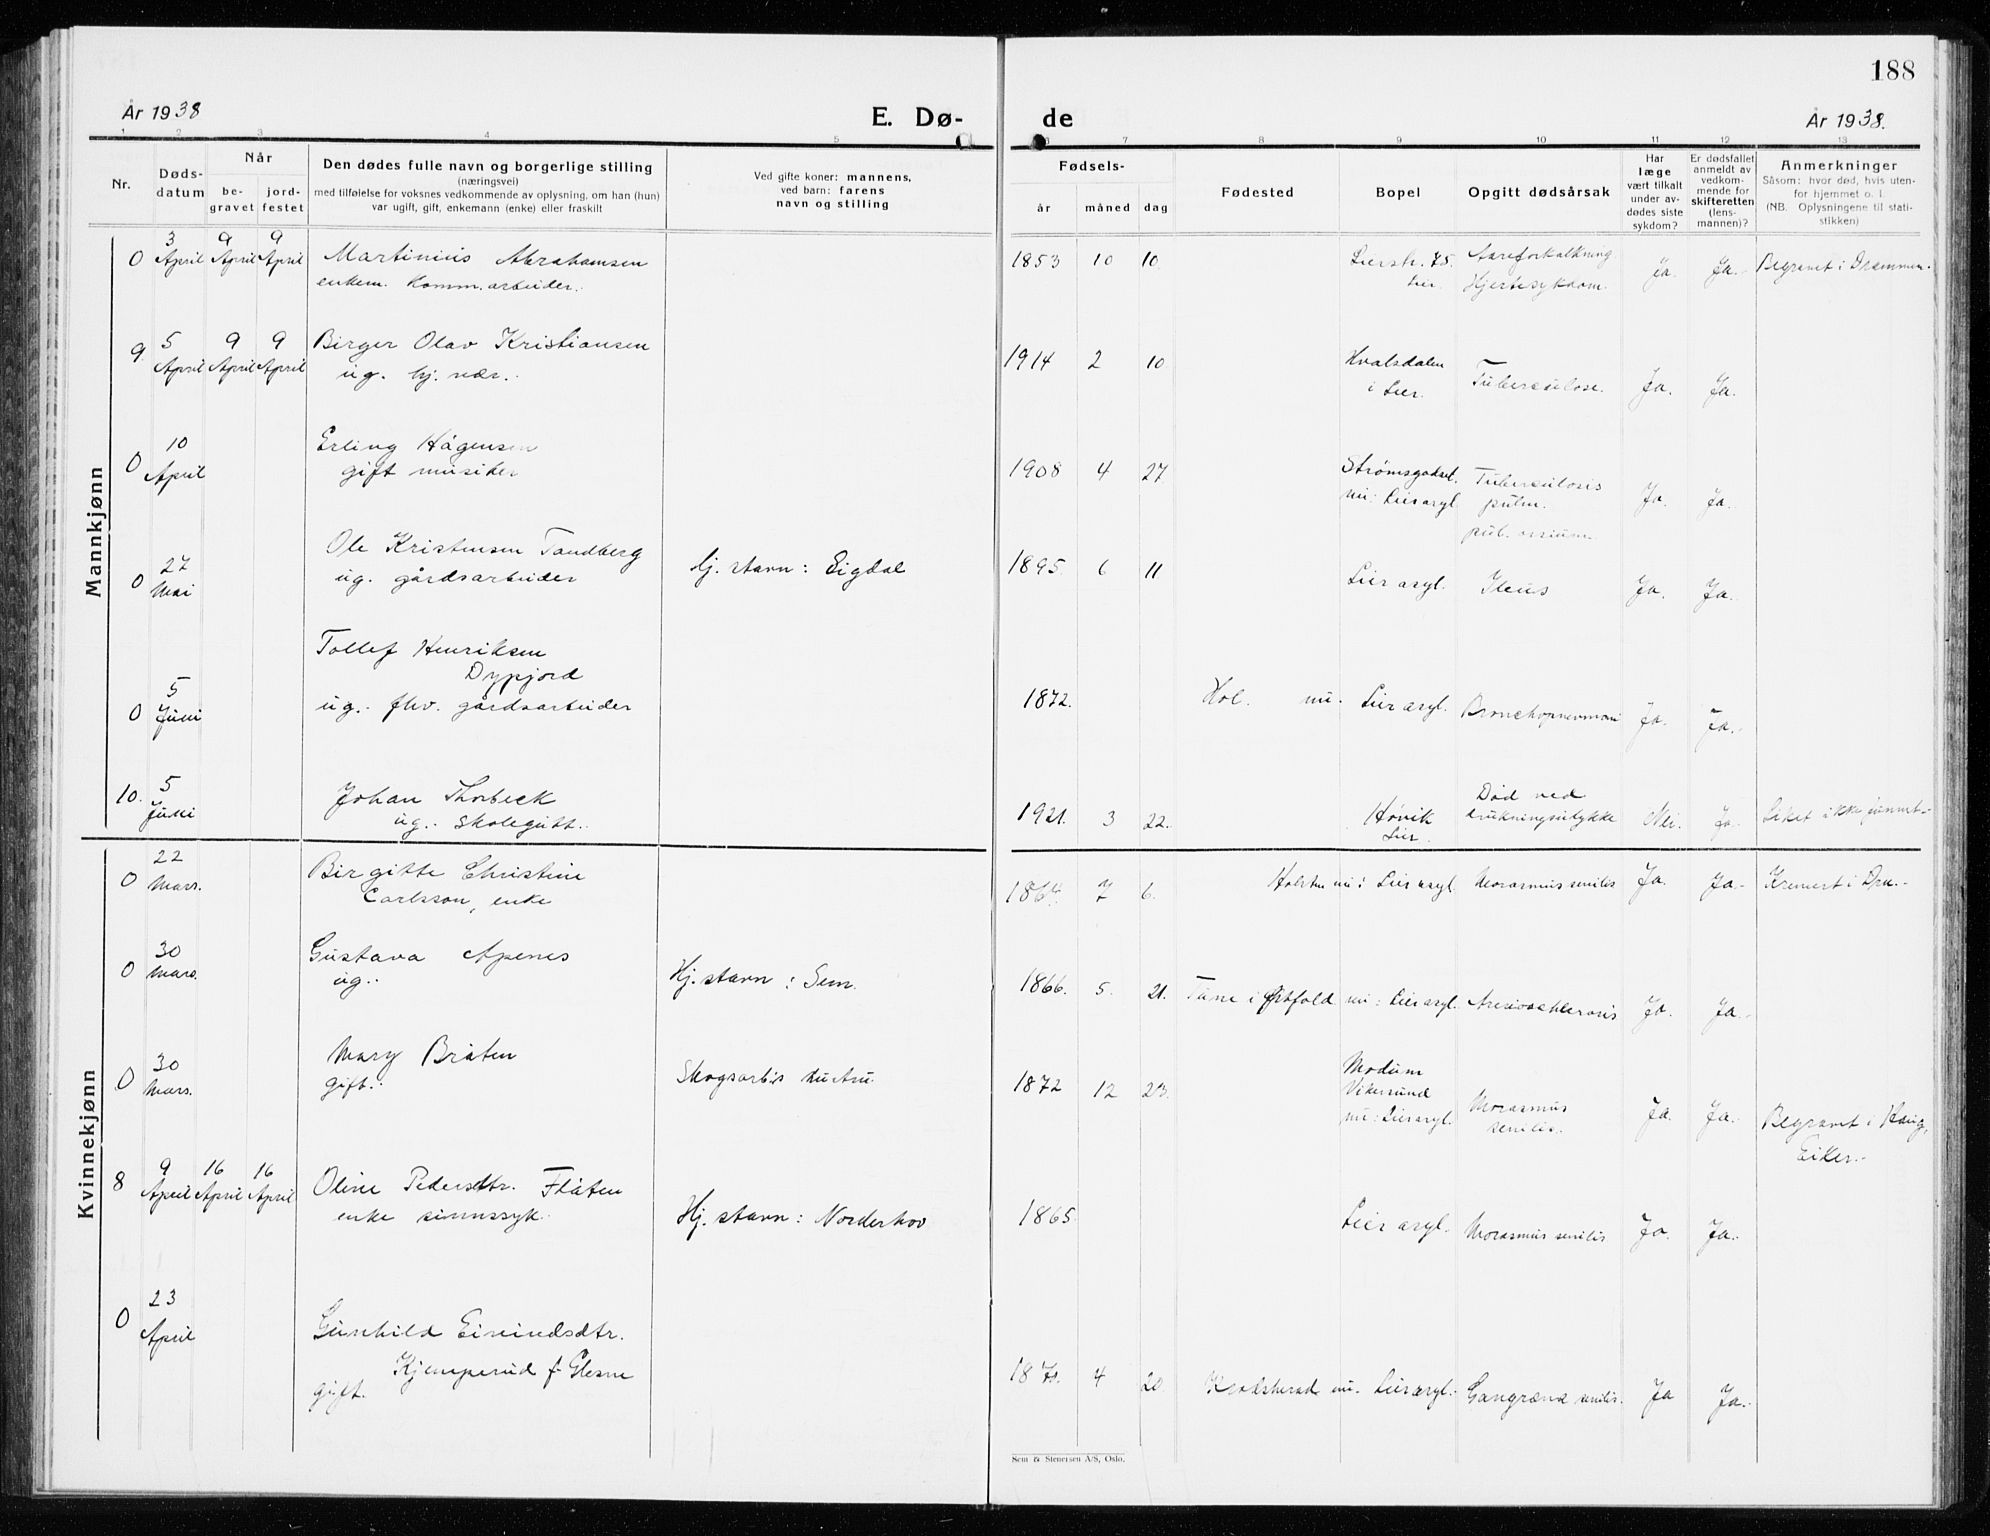 188
År 1938
E. Dø-
de
År 1938.
1 2 3 4 5 6 7 8 9 10 11 12 13
Nr.
Døds-
datum
Når
be-
gravet
jord-
festet
Den dødes fulle navn og borgerlige stilling
(næringsvei)
med tilføielse for voksnes vedkommende av oplysning, om han (hun)
var ugift, gift, enkemann (enke) eller fraskilt
Ved gifte koner: mannens,
ved barn: farens
navn og stilling
Fødsels-
år måned dag
Fødested
Bopel
Opgitt dødsårsak
Har
læge
vært tilkalt
under av-
dødes siste
sykdom?
Er dødsfallet
anmeldt av
vedkom-
mende for
skifteretten
(lens-
mannen)?
Anmerkninger
Såsom: hvor død, hvis uten-
for hjemmet o. l
(NB. Oplysningene til stati-
stikken)
Mannkjønn
0 3 April 9 April 9 April Martinius Abrahamsen
enkem. komm.arbeider.
1853 10 10 Lierstr. 75. Lier. Aareforkalkning Hjertesykdom. Ja Ja. Begravet i Drammen.
9. 5 April 9 April 9 April Birger Olav Kristiansen
ug. hj. vær.
1914 2 10 Hvalsdalen i Lier. Tuberculose. Ja. Ja.
0 10 April Erling Hågensen
gift musiker
1908 4 27. Strømsgodset. nu: Lierasyl. Tuberculosis pulm. Ja. Ja.
0 27 Mai Ole Kristensen Tandberg
ug. gårdsarbeider
hj. stavn: Sigdal
1895. 6 11 Lier asyl. Ileus Ja. Ja.
0 5 Juni Tollef Henriksen
Dypjord
ug. fhv. gårdsarbeider
1872. Hol. nu. Lier asyl. Bronchopnevmoni Ja. Ja.
10. 5 Juni Johan Thorbeck
ug. skolegutt.
1921. 3 22. Høvik Lier. Død ved drukningsulykke Nei. Ja. Liket ikke funnet.
Kvinnekjønn
0 22 Mars. Birgitte Christine
Carlsson, enke
1864. 7 6. nu: Lier asyl Morasmus senilis Ja. Ja. Kremert i Drm.
0 30 Mars. Gustava Apenes
ug.
Hj. stavn: Sem.
1866. 5. 21. Tune i Østfold nu: Lierasyl. Ja. Ja.
0 30 Mars. Mary Bråten
gift.
1872 12 23. Modum Vikersund nu: Lierasyl. Morasmus senilis. Ja. Ja. Begravet i Haug, Eiker.
8 9 April 16 April 16 April Oline Pedersdtr. Flåten
enke sinnssyk.
Hj. stavn: Norderhov
1865. Lier asyl. Morasmus senilis Ja. Ja.
0 23 April Gunhild Eivindsdtr.
Kjemperud f. Glesne
gift.
4 20. Krødsherad nu. Lierasyl. Gangræna senilis. Ja Ja.
Sem & Stenersen A/S, Oslo.